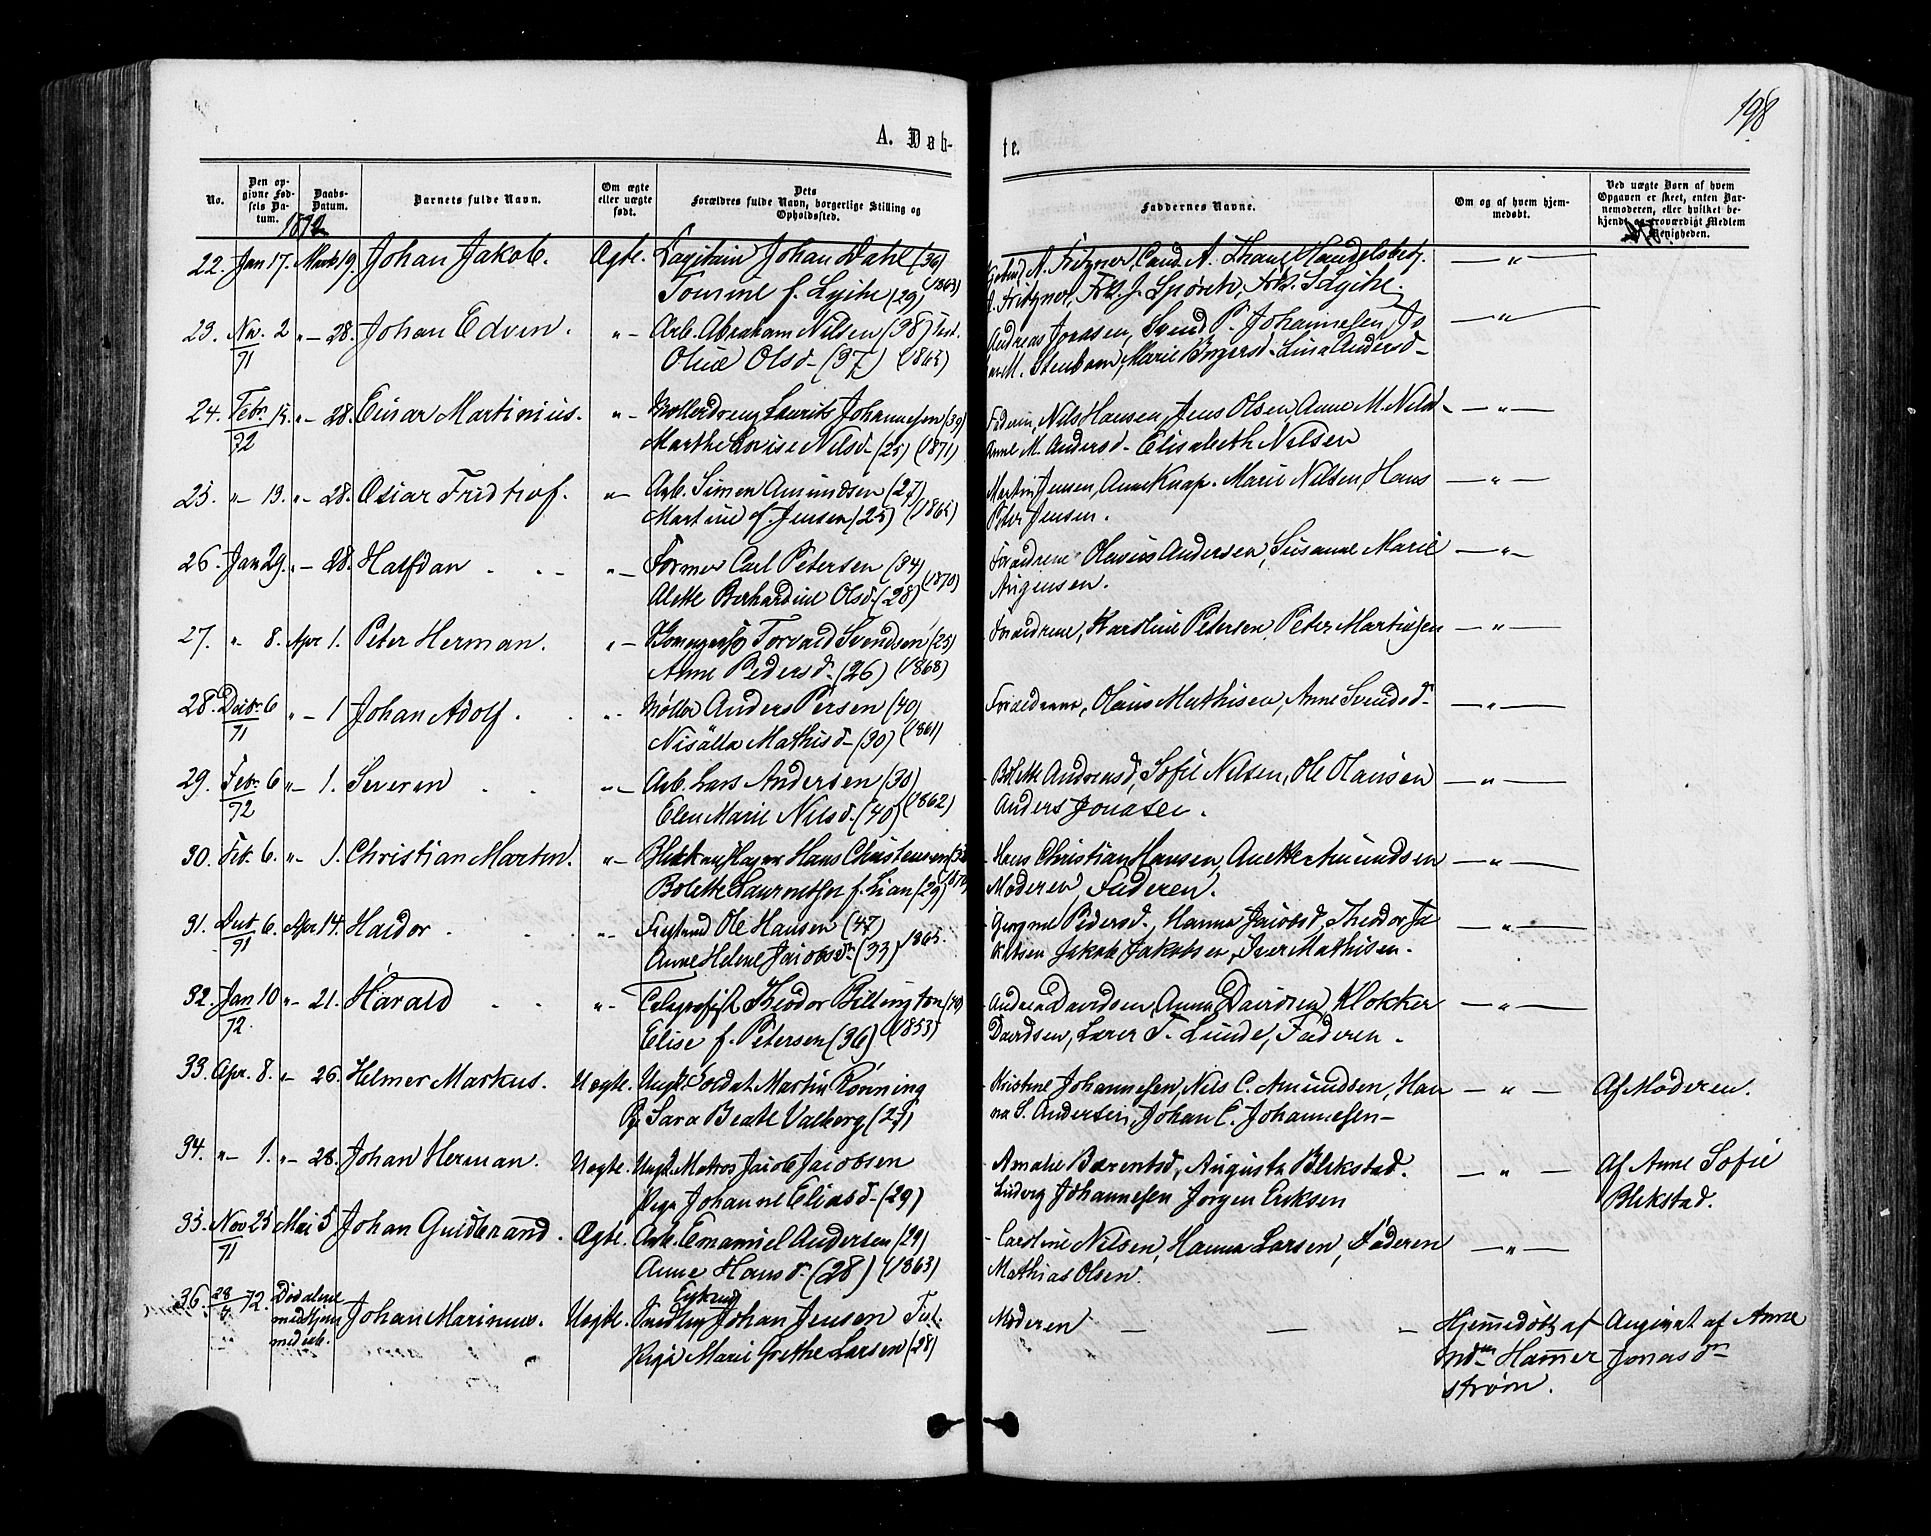 198
A. Døb-
te.
No.
Den opgivne Fødsels Datum.
Daabs-Datum.
Barnets fulde Navn.
Om ægte eller uægte født.
Dets Forældres fulde Navn, borgerlige Stilling og Opholdssted.
Faddernes Navne.
Om og af hvem hjemmedøbt.
Ved uægte Børn af hvem Opgaven er skeet, enten Barnemoderen, eller hvilket bekjendt troværdigt Medlem af Menigheden.
1872
22. Jan 17. Marts 19. Johan Jakob. Ægte. Johan Dahl (36)
(29) (1863)
A. Fritzner, Cand. A. Handelsbetj.
Fritzner, Frk. J. Frk. S.
— " —
23. Nov. 2 " – 28. Johan Edvin. " – Arb. Abraham Nilsen (38)
71 Olsd – (37) (1865)
Andreas Jonasen, Svend P. Johannesen, Jo
M. Stenbarn, Marie – Lina Andersd –
— " —
24. Febr. 15. " – 28. Einar Martinius. " – Møllerdreng Laurits Johannesen (39)
72 Marthe Lovise Nilsd – (25) (1871)
Faderen, Nils Hansen, Jens Olsen, Anne M. Nilsd –
Anne M. Andersd – Elisabeth Nilsen
— " —
25. " – 13. " – 28. Oscar Fridthiof. " – Arb. Simen Amundsen (27)
Martine f. Jensen (25) (1865)
Martin Jensen, Anne Knap. Marie Nilsen Hans
Peter Jensen.
— " —
26. Jan 29. " – 28. Halfdan . . – " – Former Carl Petersen (34)
Alette Berhardine Olsd. (28) (1870)
Forældrene Olavus Andersen, Susanne Marie
Jørgensen.
— " —
27. " 8. Apr 1. Peter Herman. " – Torvald Svendsen (25)
Anne Pedersd. (26) (1868)
Forældrene, Karoline Petersen, Peter Martinsen
— " —
28. Decbr 6 " – 1 Johan Adolf. . " – Møller Anders Persen (40)
71 Mathisd – (30) (1861)
Forældrene, Olaus Mathisen, Anne Svendsd –
— " —
29. Febr. 6 " – 1. Severin . . " – Arb. Lars Andersen (30)
72 Elen Marie Nilsd. (40) (1862)
Bolette Andreasd, Sofie Nilsen, Ole Olausen
Anders Jonasen.
— " —
30. Feb. 6. " – 1. Christian Marten. " – Blikkenslager Hans Christensen
Bolette f. Lian (29)
Hans Christian Hansen, Anette Amundsen
Moderen, Faderen.
— " —
31. Decb. 6. Apr 14. Haldor . . " – Ole Hansen (47)
71 Anne Helene Jacobsdn (33) 1865.
Jørgine Pedersd. Hanna Jacobsd, Theodor Ja
kobsen Jakob Jakobsen, Iver Mathisen.
— " —
32. Jan 10 " – 21. Harald . . " – Telegrafist Theodor Billington (40)
72. Elise f. Petersen (36) (1853)
Andrea Davidsen, Anna Davidsen, Klokker
Davidsen, Lærer T. Lunde, Faderen –
— " —
33. Apr. 8. " – 26. Helmer Markus. Uægte. Ungk. Soldat Martin Rønning
Pg. Sara Beate Valborg (27)
Kristine Johannesen, Nils C. Amundsen, Han
na S. Andersen, Johan C. Johannesen –
— " — Af Moderen.
34. " – 1. " – 28. Johan Herman. Uægte. Ungk. Matros Jacob Jacobsen
Pige Johanne Eliasd – (29)
Amalie Bærentsd, Augusta Blekstad.
Ludvig Johannesen Jørgen Eriksen
— " — Af Anne Sofie
Blekstad.
35. Nov 25 Mai 5 Johan Guldbrand. Ægte. Arb. Emanuel Andersen (29)
71 Anne Hansd. (28) (1863)
Caroline Nilsen, Hanna Larsen, Faderen
Mathias Olsen.
— " —
36. 28/4 72. Johan Marinius. Uægte. Johan Jensen
Pige Marie Grethe Larsen (28)
Moderen — — –
Hjemmedøbt af
Hammer
strøm.
Angivet af Anne
Jonasdn